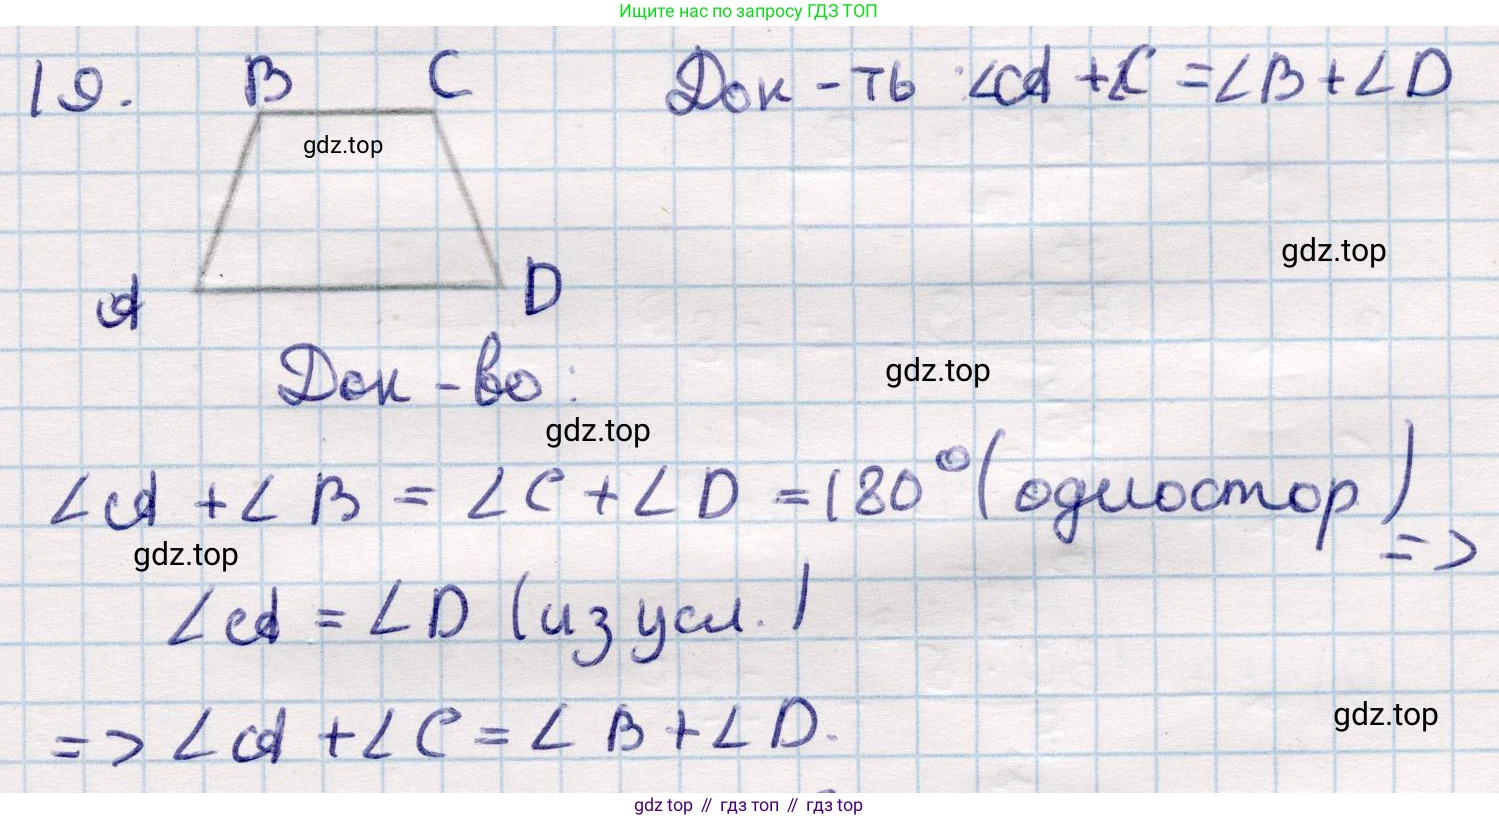 Ищите нас по запросу ГДЗ ТОП
19. B C Док-ть: ∠A + ∠C = ∠B + ∠D
gdz.top
gdz.top
A D
Док-во:
gdz.top
gdz.top
∠A + ∠B = ∠C + ∠D = 180° (одностор) =>
gdz.top
∠A = ∠D (из усл.)
=> ∠A + ∠C = ∠B + ∠D.
gdz.top
gdz top // гдз топ // гдз top